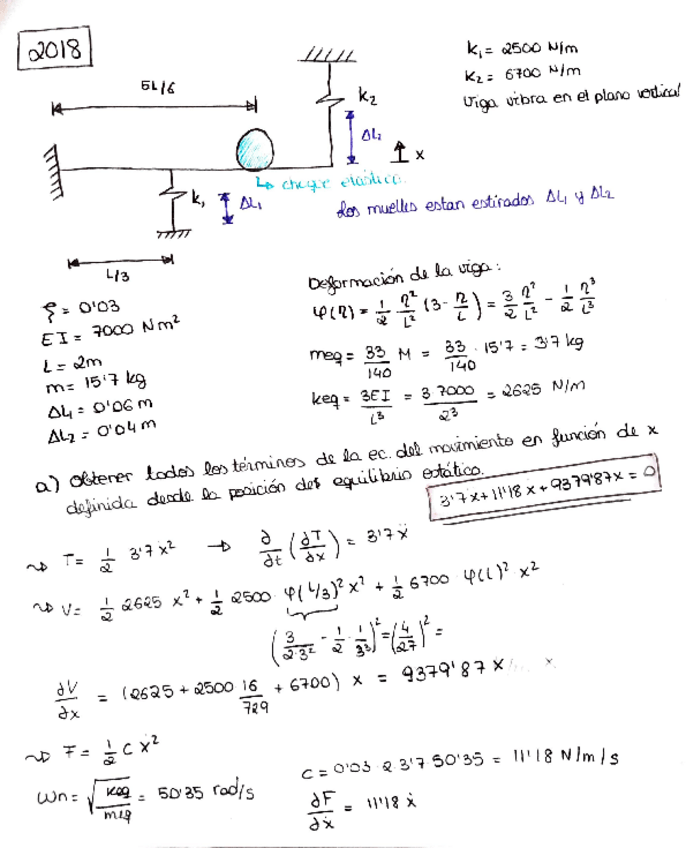 2018
k₁ = 2500 N/m
k₂ = 6700 N/m
Viga vibra en el plano vertical
5L/6
k₂
ΔL₂
x
↳ choque elástico.
k₁
ΔL₁
Los muelles estan estirados ΔL₁ y ΔL₂
L/3
ξ = 0'03
EI = 7000 Nm²
L = 2m
m = 15'7 kg
ΔL₁ = 0'06 m
ΔL₂ = 0'04 m
Deformación de la viga:
φ(η) = 1/2 η²/L² (3 - η/L) = 3/2 η²/L² - 1/2 η³/L³
meq = 33/140 M = 33/140 · 15'7 = 3'7 kg
keq = 3EI/L³ = 3 7000/2³ = 2625 N/m
a) Obtener todos los términos de la ec. del movimiento en función de x
definida desde la posición del equilibrio estático.
3'7ẍ + 11'18 ẋ + 9379'87x = 0
⇝ T = 1/2 3'7 ẋ² → ∂/∂t (∂T/∂ẋ) = 3'7ẍ
⇝ V = 1/2 2625 x² + 1/2 2500 · φ(L/3)² x² + 1/2 6700 · φ(L)² x²
(3/2·3² - 1/2 · 1/3³)² = (4/27)² =
∂V/∂x = (2625 + 2500 16/729 + 6700) x = 9379'87 x
⇝ F = 1/2 C ẋ²
ωn = √(keq/meq) = 50'35 rad/s
C = 0'03 · 2 · 3'7 50'35 = 11'18 N/m/s
∂F/∂ẋ = 11'18 ẋ